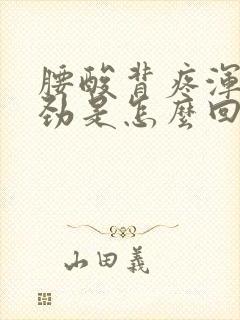 腰酸背疼渾
勁是怎麼回
山田義